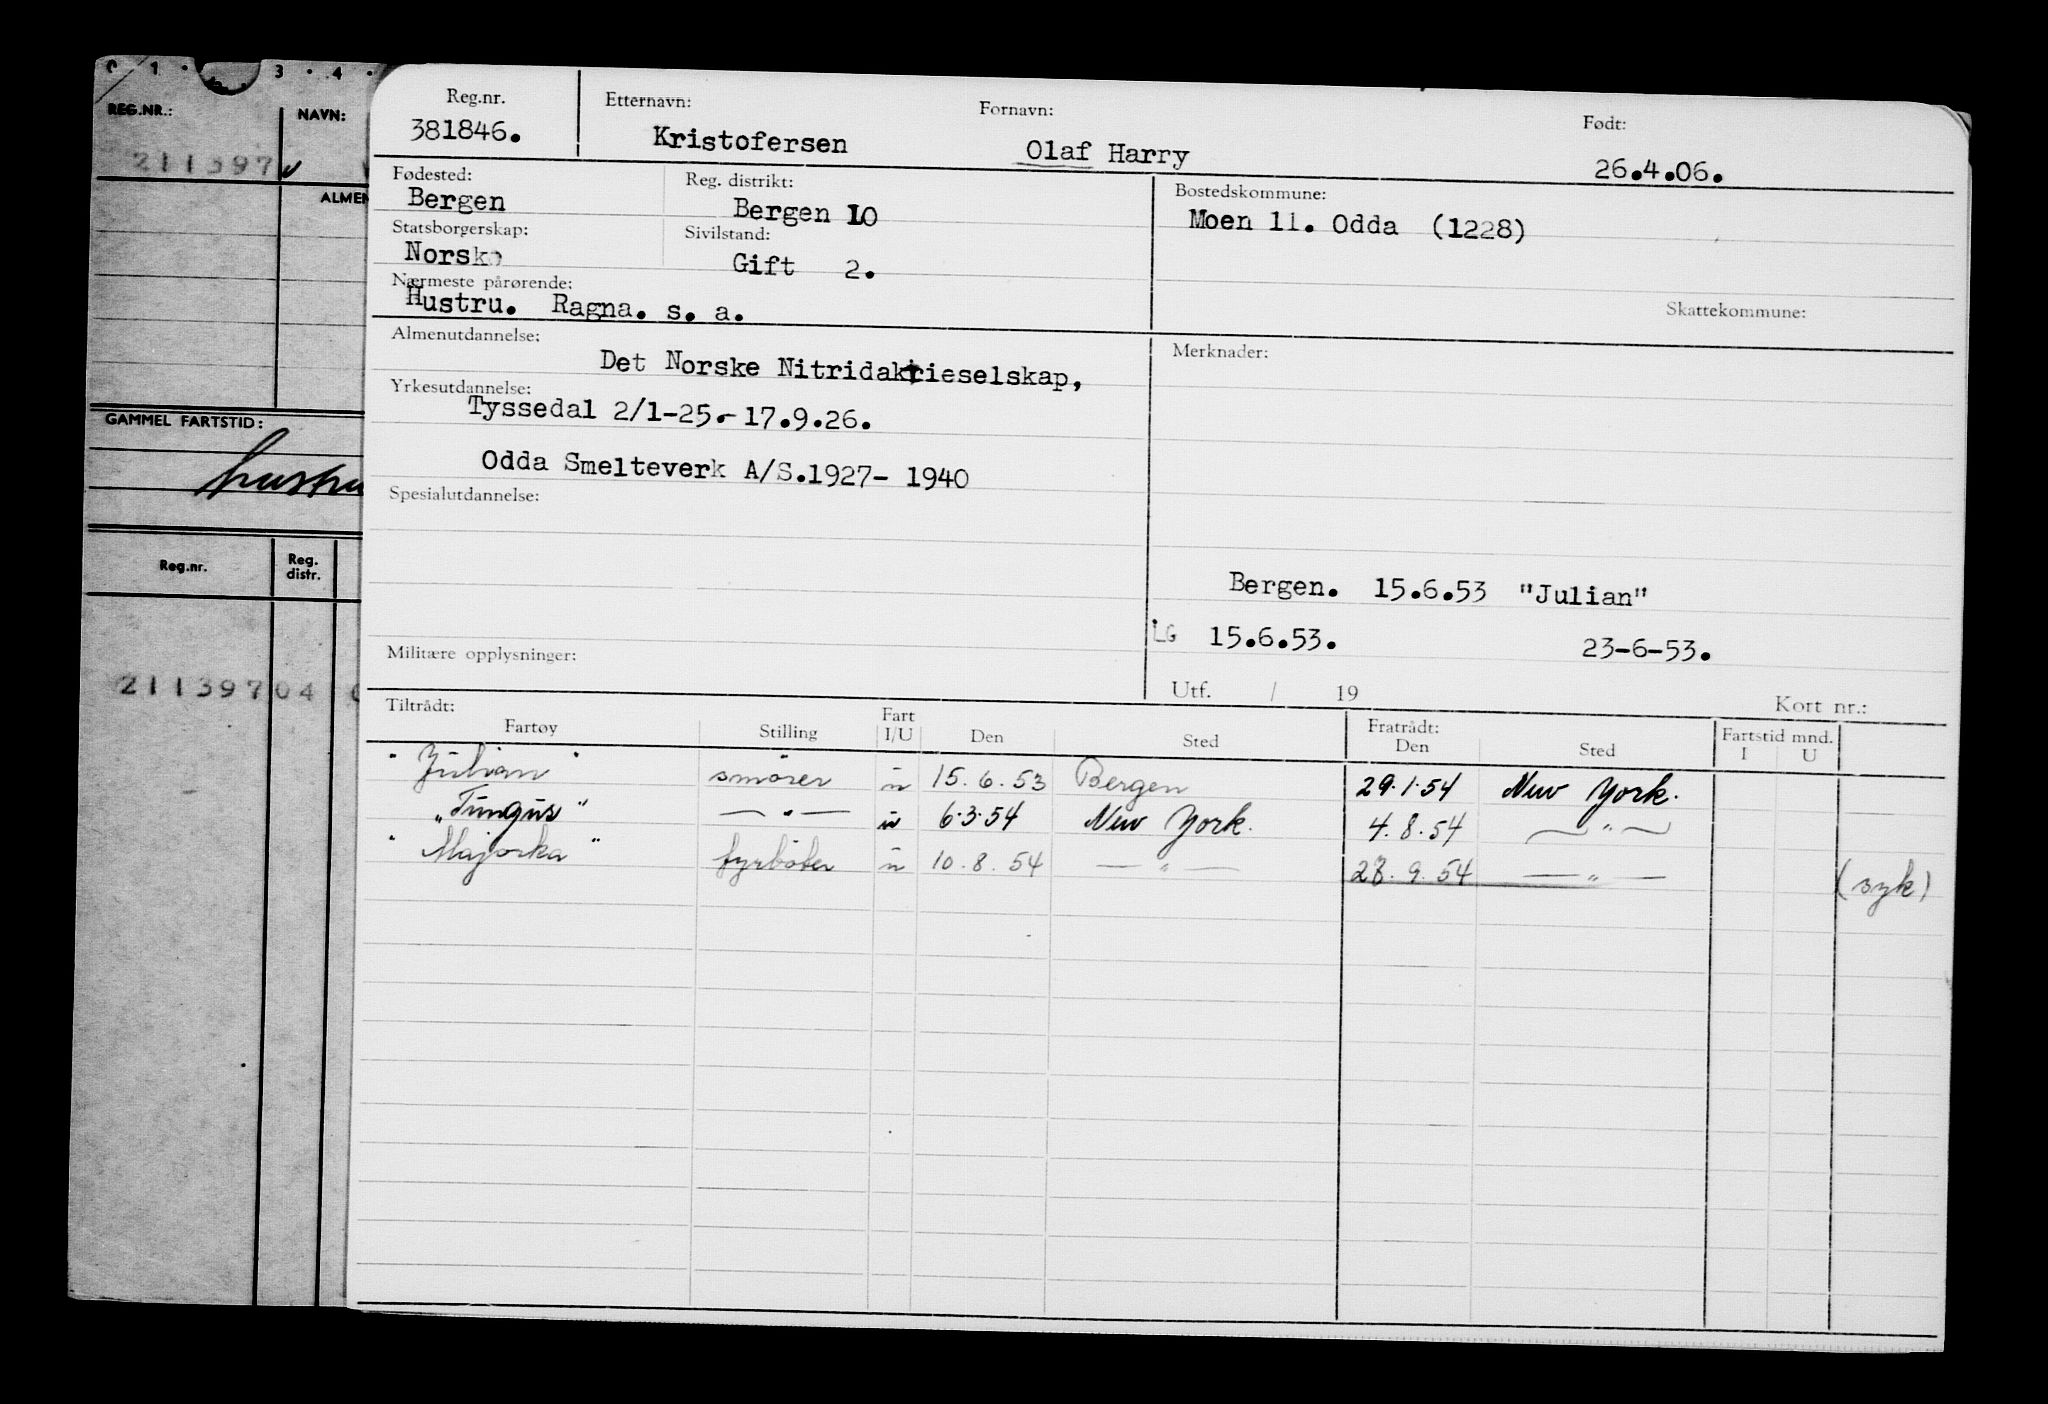 1 . 3 . 4 .
REG.NR.:
NAVN:
211397
GAMMEL FARTSTID:
hustru
Reg.nr.
Reg. distr.
21139704
Reg.nr.
Etternavn:
Fornavn:
Født:
381846.
Kristofersen
Olaf Harry
26.4.06.
Fødested:
Reg. distrikt:
Bostedskommune:
Bergen
Bergen 10
Moen 11. Odda (1228)
Statsborgerskap:
Sivilstand:
Norsk
Gift 2.
Nærmeste pårørende:
Skattekommune:
Hustru. Ragna. s. a.
Almenutdannelse:
Merknader:
Det Norske Nitridaktieselskap,
Yrkesutdannelse:
Tyssedal 2/1-25.- 17.9.26.
Odda Smelteverk A/S.1927- 1940
Spesialutdannelse:
Bergen. 15.6.53 "Julian"
LG 15.6.53. 23-6-53.
Militære opplysninger:
Utf. / 19
Kort nr.:
Tiltrådt:
Fartøy
Stilling
Fart I/U
Den
Sted
Fratrådt:
Den
Sted
Fartstid mnd.
I U
" Julian " smörer u 15.6.53 Bergen 29.1.54 New York.
„Tungus" — " — u 6.3.54 New York. 4.8.54 — " —
" Majorka " fyrböter u 10.8.54 — " — 28.9.54 — " — (syk)